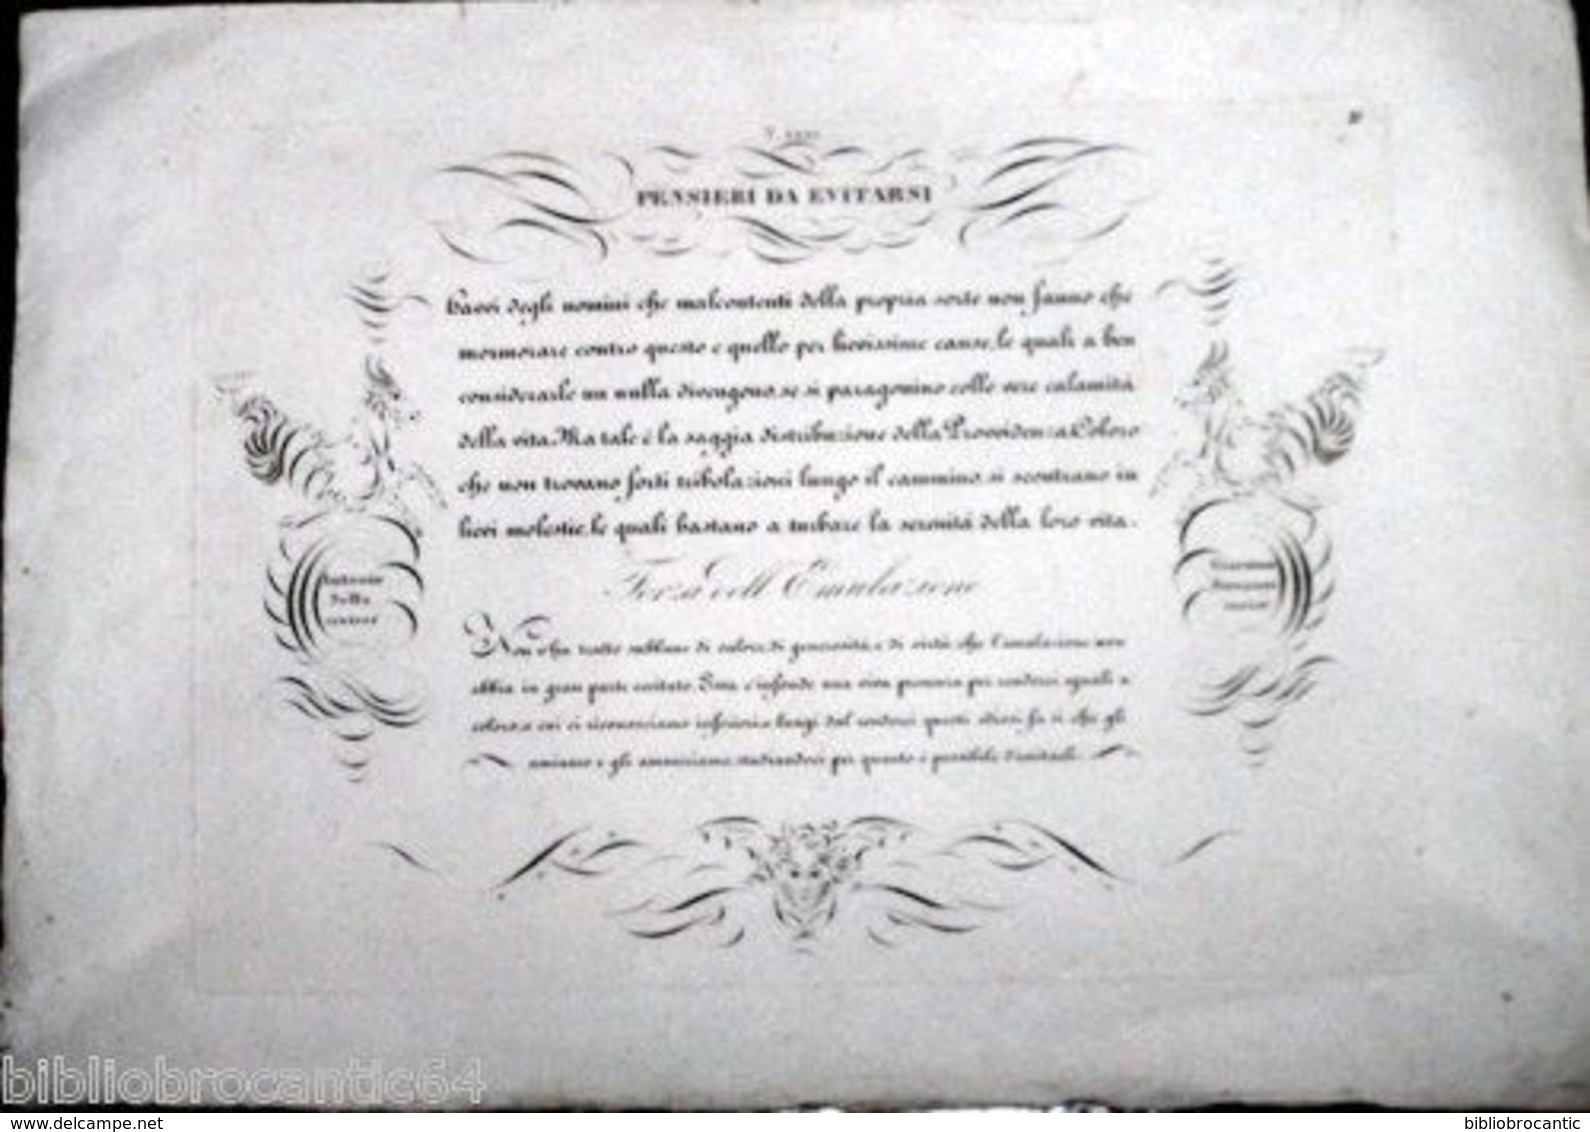 PENSIERI DA EVITARSI
Havvi degli uomini che malcontenti della propria sorte non fanno che
mormorare contro questo e quello per lievissime cause, le quali a ben
considerarle un nulla divengono, se si paragonino colle vere calamità
della vita. Ma tale è la saggia distribuzione della Provvidenza. Coloro
che non trovano forti tribolazioni lungo il cammino, si scontrano in
lievi molestie, le quali bastano a turbare la serenità della loro vita.
Forza dell'Emulazione
Non v'ha tratto sublime di valore, di generosità, e di virtù, che l'emulazione non
abbia in gran parte eccitato. Essa c'infonde una viva premura per renderci eguali a
coloro, a cui ci riconosciamo inferiori, e lungi dal renderci questi odiosi fa sì che gli
amiamo e gli ammiriamo, studiandoci per quanto è possibile d'imitarli.
Antonio
Sella
scrisse
incise
bibliobrocantic64
delcampe.net
bibliobrocantic